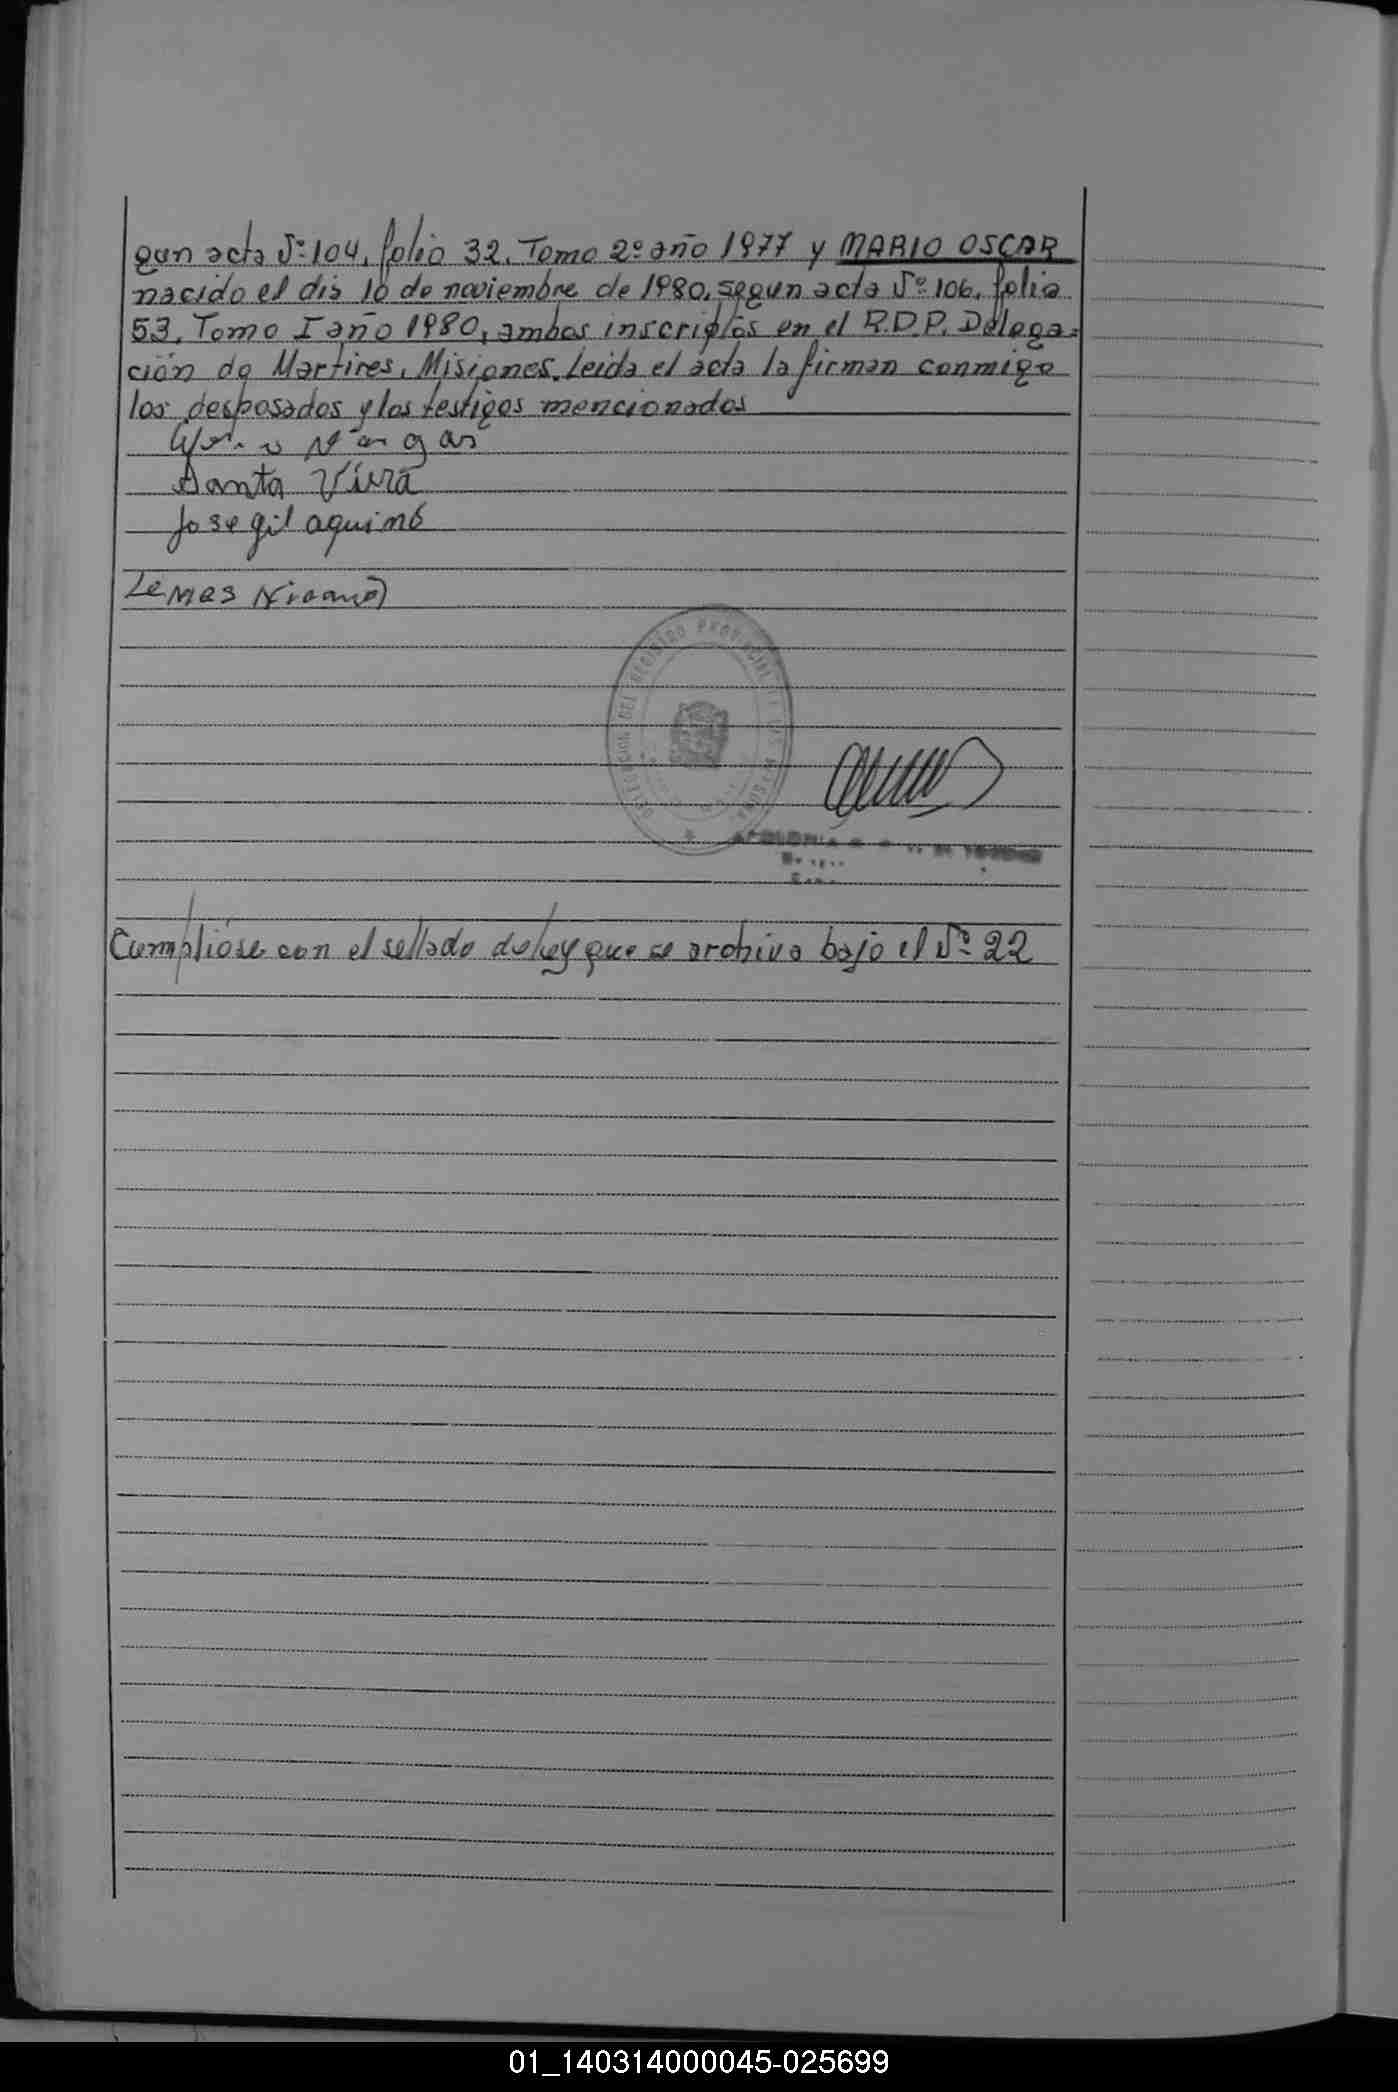 gun acta Nº 104, folio 32, Tomo 2º año 1977 y MARIO OSCAR
nacido el dia 10 de noviembre de 1980, segun acta Nº 106, folio
53, Tomo I año 1980, ambos inscriptos en el R.D.P. Delega-
ción de Martires, Misiones. Leida el acta la firman conmigo
los desposados y los testigos mencionados
Vargas
Santa Viera
Jose gil aquino
Lemes
DELEGACION DEL REGISTRO PROVINCIAL DE LAS PERSONAS
Cumplióse con el sellado de Ley que se archiva bajo el Nº 22
01_140314000045-025699